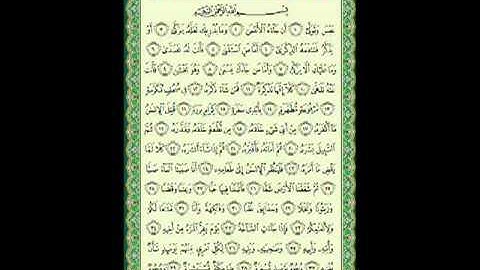 بسم الله الرحمن الرحيم
عبس وتولى ١ أن جاءه الأعمى ٢ وما يدريك لعله يزكى ٣ أو
يذكر فتنفعه الذكرى ٤ أما من استغنى ٥ فأنت له تصدى ٦
وما عليك ألا يزكى ٧ وأما من جاءك يسعى ٨ وهو يخشى ٩ فأنت
عنه تلهى ١٠ كلا إنها تذكرة ١١ فمن شاء ذكره ١٢ في صحف مكرمة
١٣ مرفوعة مطهرة ١٤ بأيدي سفرة ١٥ كرام بررة ١٦ قتل الإنسان
ما أكفره ١٧ من أي شيء خلقه ١٨ من نطفة خلقه فقدره ١٩ ثم
السبيل يسره ٢٠ ثم أماته فأقبره ٢١ ثم إذا شاء أنشره ٢٢ كلا لما
يقض ما أمره ٢٣ فلينظر الإنسان إلى طعامه ٢٤ أنا صببنا الماء صبا
٢٥ ثم شققنا الأرض شقا ٢٦ فأنبتنا فيها حبا ٢٧ وعنبا وقضبا ٢٨
وزيتونا ونخلا ٢٩ وحدائق غلبا ٣٠ وفاكهة وأبا ٣١ متاعا لكم
ولأنعامكم ٣٢ فإذا جاءت الصاخة ٣٣ يوم يفر المرء من أخيه ٣٤
وأمه وأبيه ٣٥ وصاحبته وبنيه ٣٦ لكل امرئ منهم يومئذ شأن